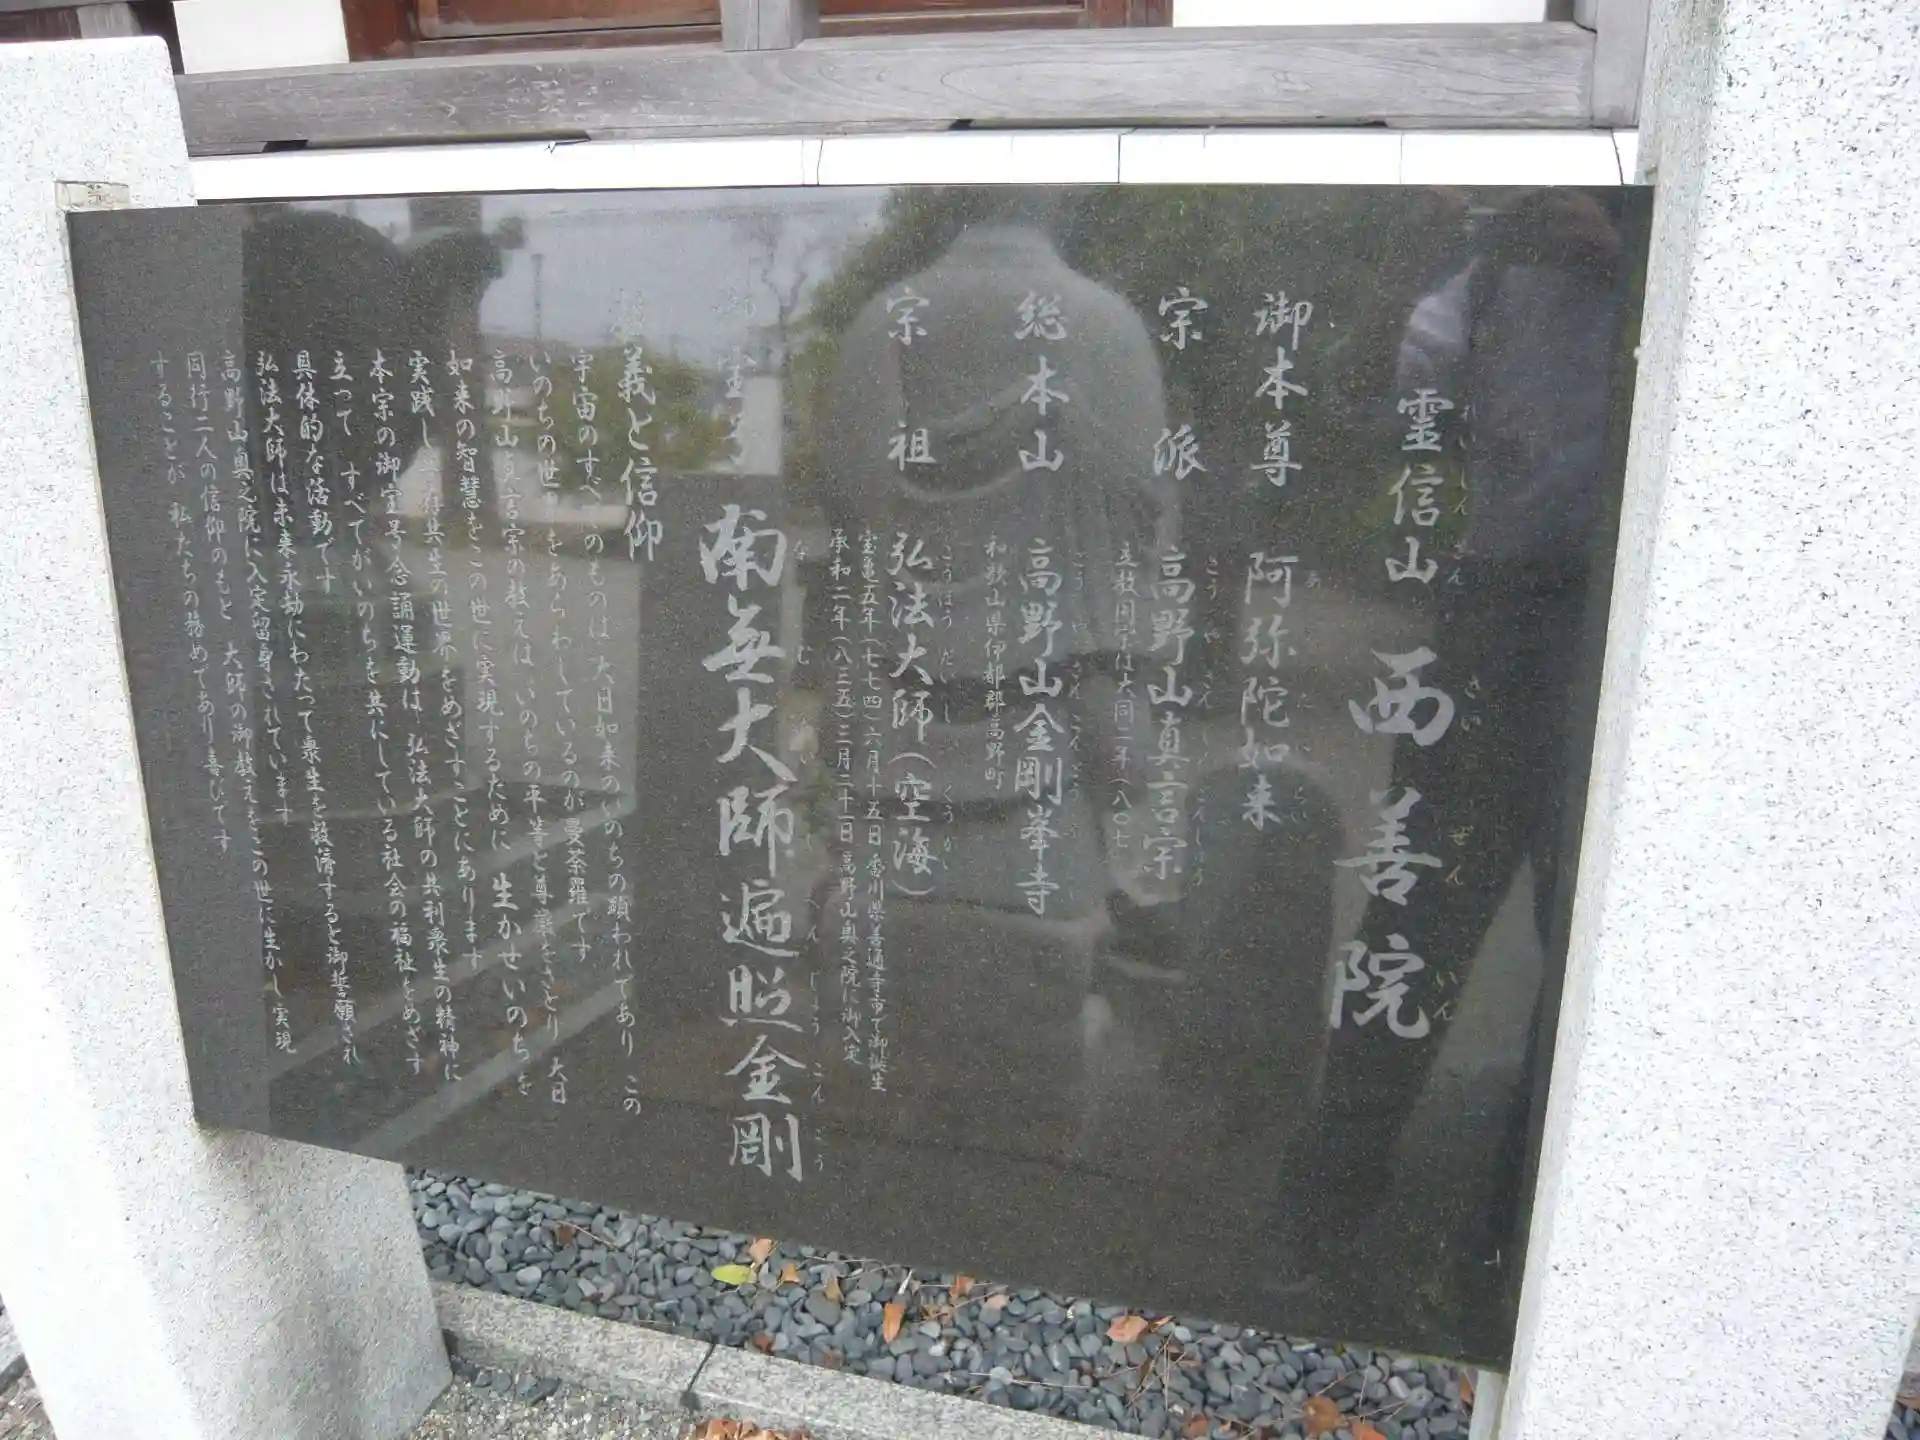 霊信山 西善院
れいしんざん さいぜんいん
御本尊 阿弥陀如来
あみだにょらい
宗派 高野山真言宗
こうやさんしんごんしゅう
立教開宗は大同二年(八〇七
総本山 高野山金剛峯寺
こうやさんこんごうぶじ
和歌山県伊都郡高野町
宗祖 弘法大師(空海)
こうぼうだいし くうかい
宝亀五年(七七四)六月十五日 香川県善通寺市で御誕生
承和二年(八三五)三月二十一日 高野山奥之院に御入定
御宝号 南無大師遍照金剛
なむだいしへんじょうこんごう
義と信仰
宇宙のすべてのものは 大日如来のいのちの顕われであり この
いのちの世界をあらわしているのが曼荼羅です
高野山真言宗の教えは いのちの平等と尊厳をさとり 大日
如来の智慧をこの世に実現するために 生かせいのちを
実践し 共存共生の世界をめざすことにあります
本宗の御宝号念誦運動は 弘法大師の共利衆生の精神に
立って すべてがいのちを共にしている社会の福祉をめざす
具体的な活動です
弘法大師は未来永劫にわたって衆生を救済すると御誓願され
高野山奥之院に入定留身されています
同行二人の信仰のもと 大師の御教えをこの世に生かし実現
することが 私たちの務めであり喜びです